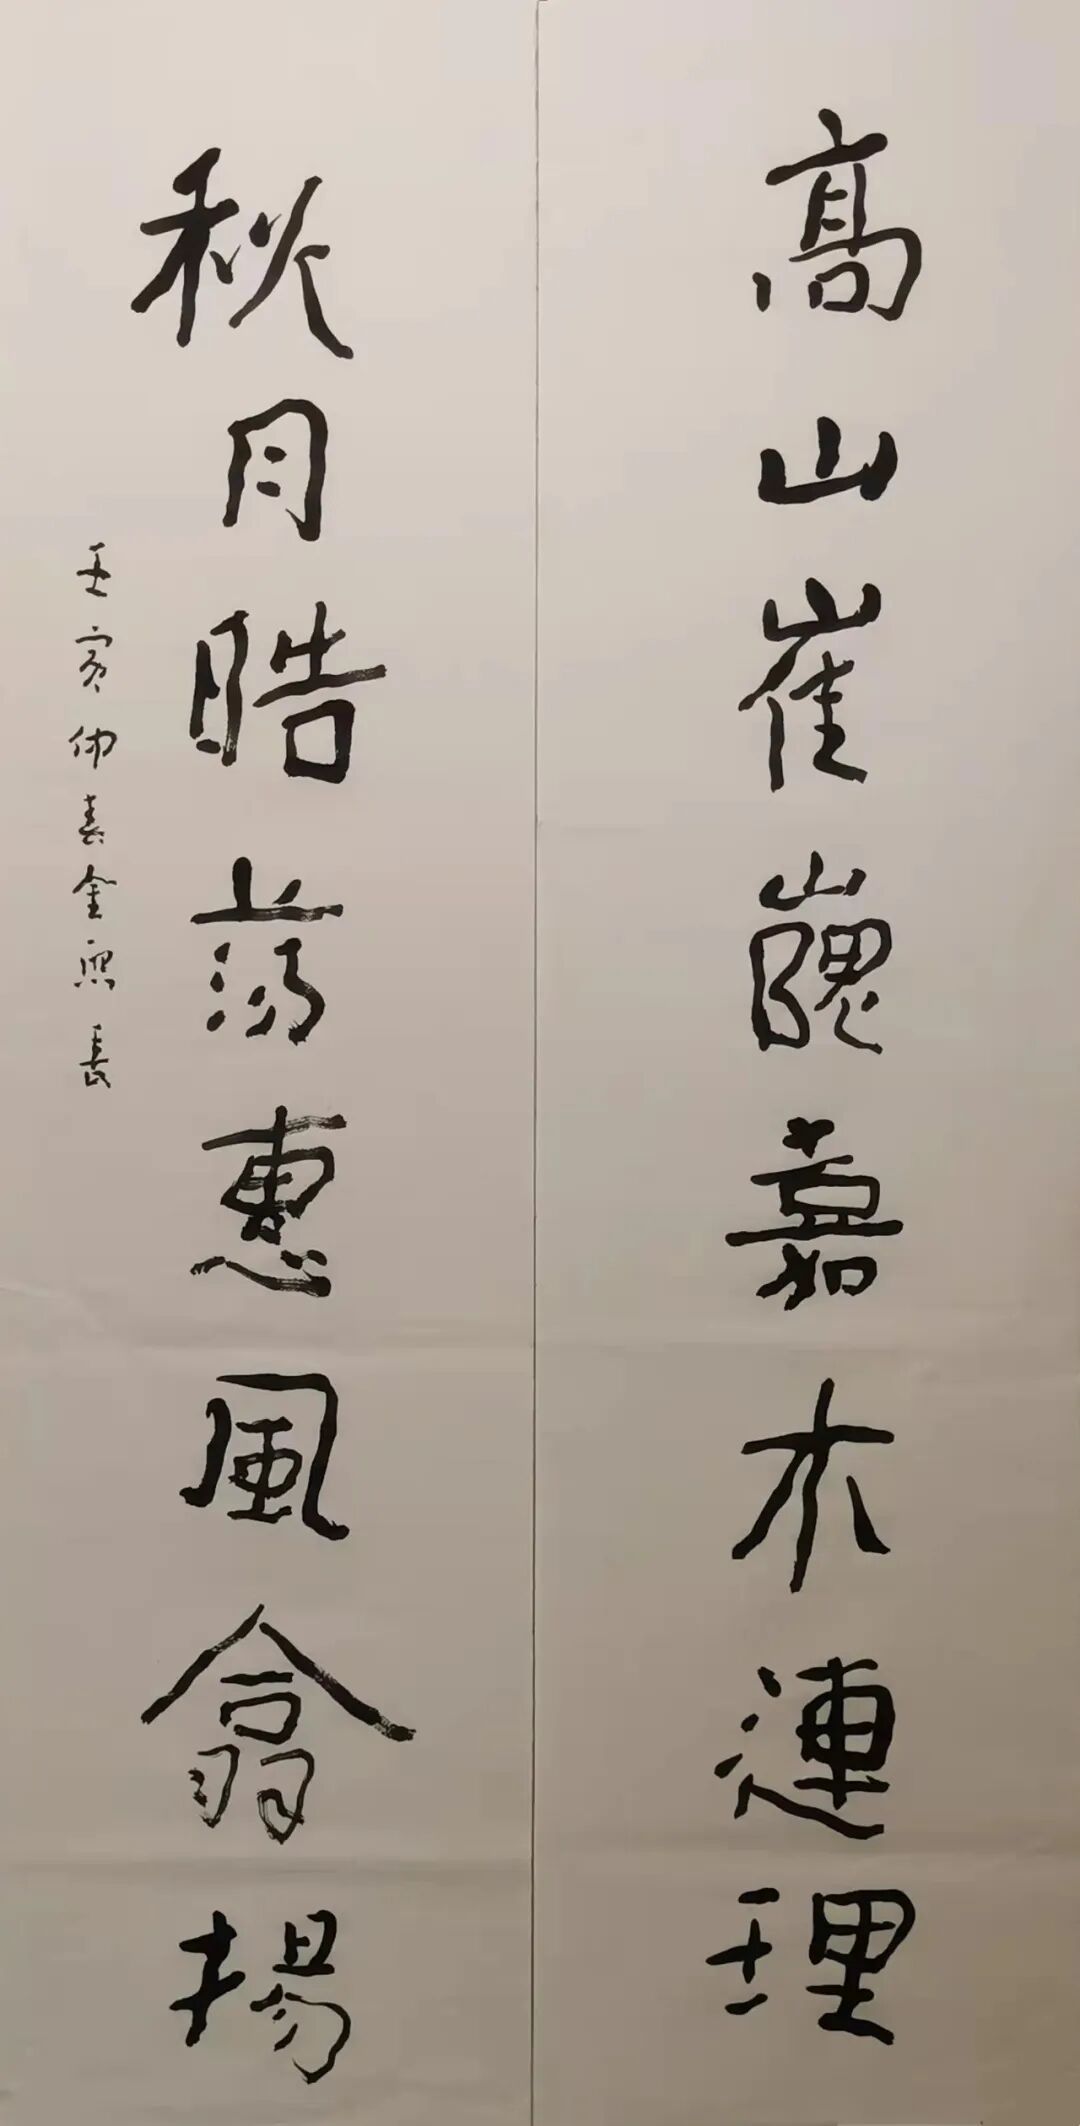 高山崔巍嘉木連理
秋月晧蕩惠風翕揚
壬寅仲春金熙長